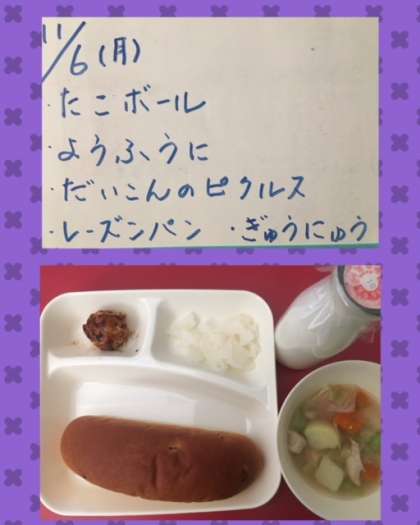 11/6(月)
・たこボール
・ようふうに
・だいこんのピクルス
・レーズンパン ・ぎゅうにゅう